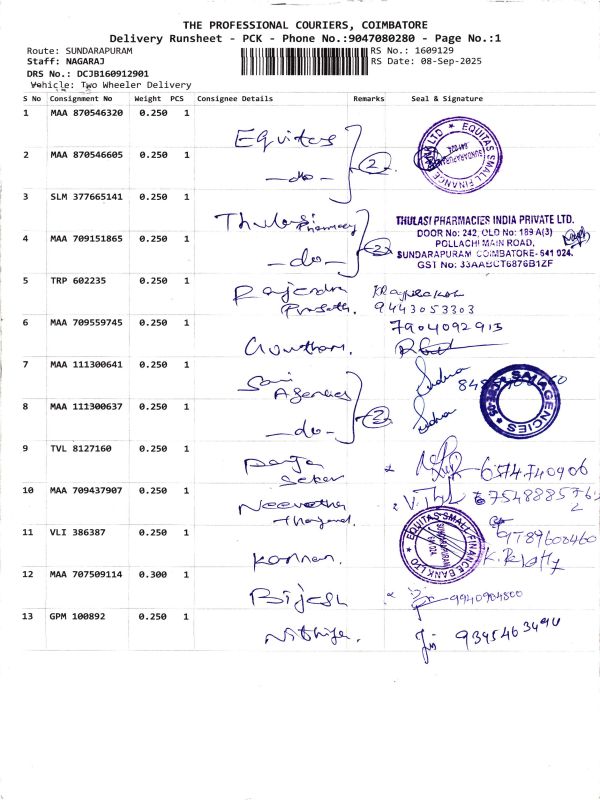 THE PROFESSIONAL COURIERS, COIMBATORE
Delivery Runsheet - PCK - Phone No.:9047080280 - Page No.:1
Route: SUNDARAPURAM
RS No.: 1609129
Staff: NAGARAJ
RS Date: 08-Sep-2025
DRS No.: DCJB160912901
Vehicle: Two Wheeler Delivery
S No Consignment No Weight PCS Consignee Details Remarks Seal & Signature
1 MAA 870546320 0.250 1 Equitas
2 MAA 870546605 0.250 1 -do- 2
EQUITAS SMALL FINANCE LTD
SUNDARAPURAM
641 024
3 SLM 377665141 0.250 1 Thulasi Pharmacy
4 MAA 709151865 0.250 1 -do- 2
THULASI PHARMACIES INDIA PRIVATE LTD.
DOOR No: 242, OLD No: 189 A(3)
POLLACHI MAIN ROAD,
SUNDARAPURAM COIMBATORE-641 024.
GST No: 33AABCT6876B1ZF
5 TRP 602235 0.250 1 Rajendra
9443053303
6 MAA 709559745 0.250 1 Gowtham. 7904092913
7 MAA 111300641 0.250 1 Sai Agencies Sudha
8 MAA 111300637 0.250 1 -do- 2 Sudha
SAI AGENCIES
9 TVL 8127160 0.250 1 Sekar
10 MAA 709437907 0.250 1
11 VLI 386387 0.250 1 Kannan. 9789608460
EQUITAS SMALL FINANCE BANK LTD
SUNDARAPURAM
12 MAA 707509114 0.300 1 Bijesh 9940904800
13 GPM 100892 0.250 1 Nithya. 9345463490